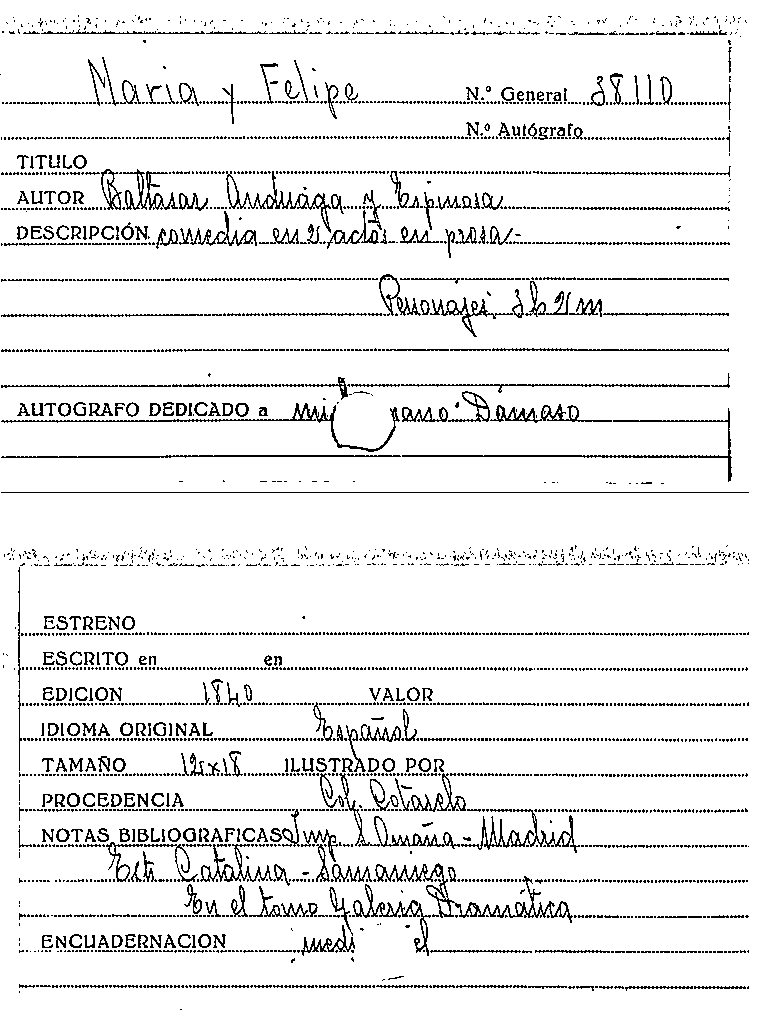 Maria y Felipe N.º General 38110
N.º Autógrafo
TITULO
AUTOR Baltasar Anduaga y Espinosa
DESCRIPCIÓN comedia en 2 actos en prosa-
Personajes: 3h 2m
AUTOGRAFO DEDICADO a mi Dámaso
ESTRENO
ESCRITO en en
EDICION 1840 VALOR
IDIOMA ORIGINAL Español
TAMAÑO 12x18 ILUSTRADO POR
PROCEDENCIA Col. Cotarelo
NOTAS BIBLIOGRAFICAS Imp. S. Omaña - Madrid
Catalina - Samaniego
En el tomo Galeria Dramática
ENCUADERNACION